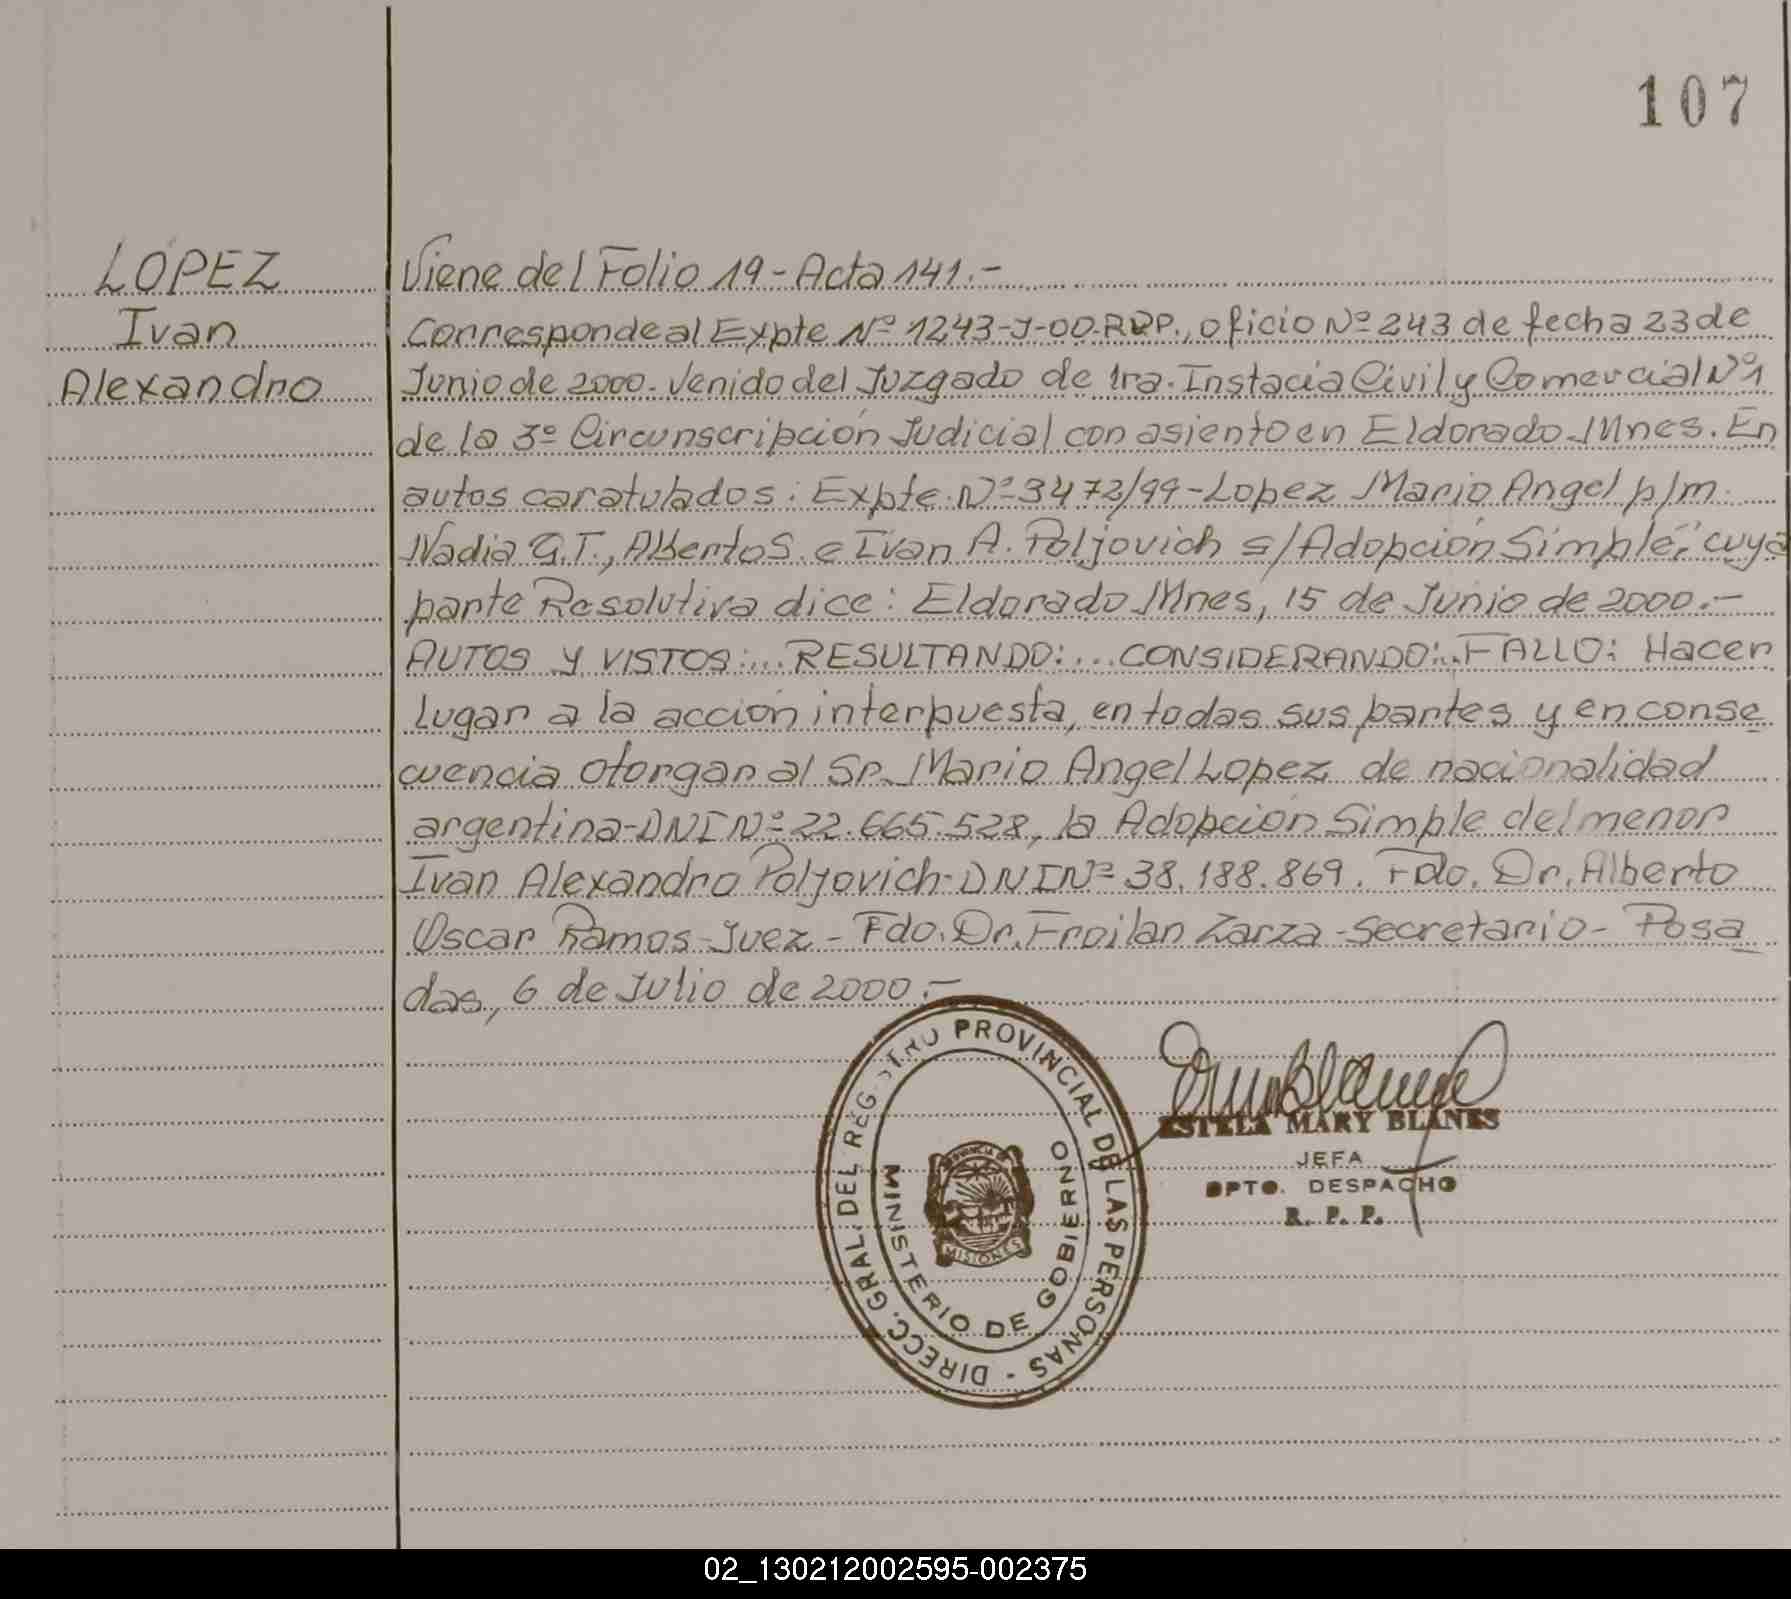 107
LOPEZ
Ivan
Alexandro
Viene del Folio 19 - Acta 141.-
Corresponde al Expte Nº 1243-J-00-RPP., oficio Nº 243 de fecha 23 de
Junio de 2000. Venido del Juzgado de 1ra. Instacia Civil y Comercial Nº1
de la 3º Circunscripción Judicial con asiento en Eldorado Mnes. En
autos caratulados: Expte. Nº 3472/99 - Lopez Mario Angel p/m.
Nadia G.T., Alberto S. e Ivan A. Poljovich s/Adopción Simple," cuya
parte Resolutiva dice: Eldorado Mnes, 15 de Junio de 2000.-
AUTOS Y VISTOS:... RESULTANDO:... CONSIDERANDO:.. FALLO: Hacer
lugar a la acción interpuesta, en todas sus partes y en conse
cuencia otorgar al Sr. Mario Angel Lopez de nacionalidad
argentina - DNI Nº 22.665.528, la Adopción Simple del menor
Ivan Alexandro Poljovich - DNI Nº 38.188.869. Fdo. Dr. Alberto
Oscar Ramos - Juez - Fdo. Dr. Froilan Zarza - Secretario - Posa
das, 6 de Julio de 2000.-
DIRECC. GRAL. DEL REGISTRO PROVINCIAL DE LAS PERSONAS -
MINISTERIO DE GOBIERNO
PROVINCIA DE
MISIONES
ESTELA MARY BLANES
JEFA
DPTO. DESPACHO
R. P. P.
02_130212002595-002375